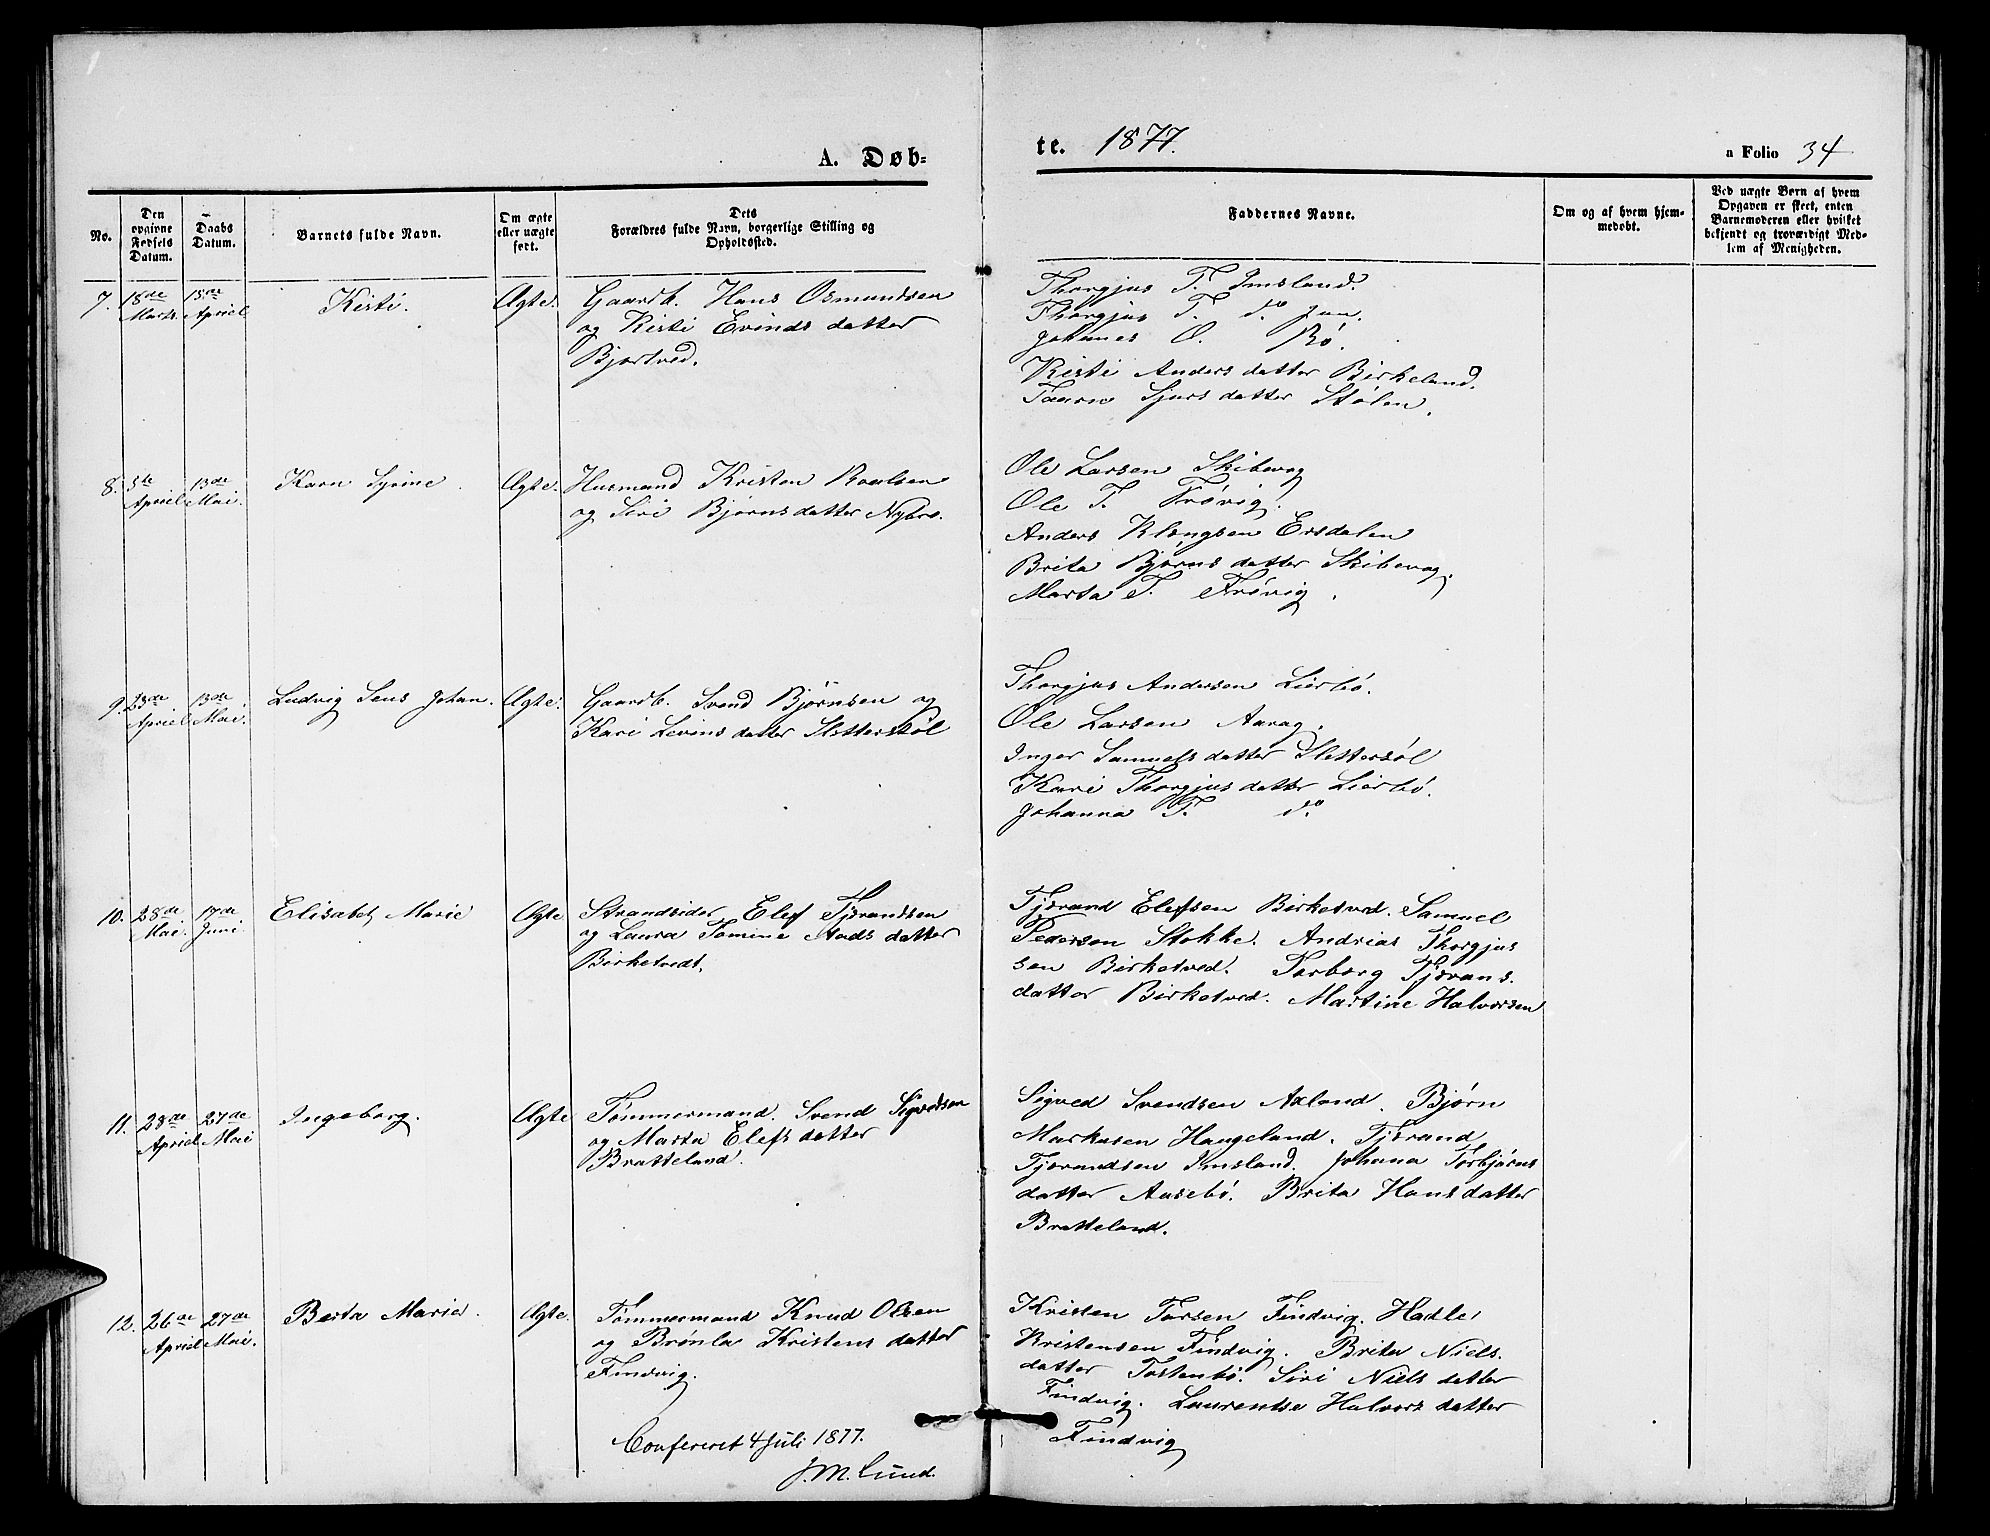 A. Døb-
te. 1877.
a Folio 34
No.
Den opgivne Fødsels Datum.
Daabs Datum.
Barnets fulde Navn.
Om ægte eller uægte født.
Dets Forældres fulde Navn, borgerlige Stilling og Opholdssted.
Faddernes Navne.
Om og af hvem hjemmedøbt.
Ved uægte Børn af hvem Opgaven er skeet, enten Barnemoderen eller hvilket bekjendt og troværdigt Medlem af Menigheden.
7. 18de Marts. 15de Apriel
Kisti.
Ægte.
Gaardb. Hans Osmundsen
og Kisti Evinds datter
Bjortved.
Thorgjus T. Imsland.
Thorgjus T. do Jun.
Johanes O. Rö.
Kisti Anders datter Birkeland.
Taarn Sjurs datter Stølen.
8. 5te Apriel 13de Mai.
Karn Syrine
Ægte.
Husmand Kristen Roalsen
og Siri Bjørns datter Nybro.
Ole Larsen Skibevog
Ole T. Frövig.
Anders Klongsen Ersdalen
Brita Bjørns datter Skibevog.
Marta T. Frövig.
9. 23de Apriel 13de Mai.
Ludvig Sens Johan.
Ægte.
Gaardb. Svend Bjørnsen og
Kari Levins datter Slettestøl
Thorgjus Andersen Lierbö.
Ole Larsen Aarag.
Inger Samuels datter Slettersøl
Kari Thorgjus datter Lierbö.
Johanna T. do
10. 28de Mai. 17de Juni.
Elisabet Marie
Ægte
Strandsider Elef Tjerandsen
og Laura Tomine Aads datter
Birketvedt.
Tjerand Elefsen Birketved. Samuel
Pedersen Stokke. Andrias Thorgjus
sen Birketved. Torborg Tjerans.
datter Birketved. Martine Halvorsen
11. 28de Apriel 27de Mai
Ingeborg.
Ægte
Tømmermand. Svend Sigvedsen
og Marta Elefs datter
Bratteland.
Sigved Svendsen Axland. Bjørn
Markusen Haugeland. Tjerand
Tjerandsen Imsland. Johana Torbjørns
datter Aasebö. Brita Hans datter
Bratteland.
12. 26de Apriel 27de Mai.
Berta Maria.
Ægte.
Tømmermand Knud Olsen
og Brønla Kristens datter
Findvig.
Kristen Torsen Findvig. Hadle
Kristensen Findvig. Brita Niels.
datter Tostenbö. Siri Niels datter
Findvig. Laurentse Halvors datter
Findvig
Confereret 4 Juli 1877.
J. M. Lund.